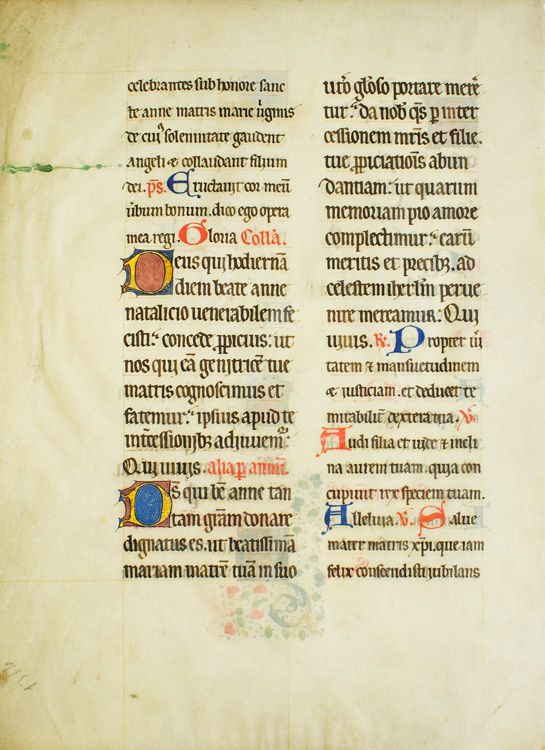 celebrantes sub honore sanc
te anne matris marie ūginis
de cuiꝰ solennitate gaudent
angeli et collaudant filium
dei. p̄s. Eructavit cor meū
ūbum bonum. dico ego opera
mea regi. Gloria Collā.
Deus qui hodiernā
diem beate anne
natalicio venerabilem fe
cisti: concede ꝓpicius: ut
nos qui eā genitricē tue
matris cognoscimus et
fatemur: ipsius apud te
int̄cessioībꝫ adiuvemꝰ.
Qui vivis. alia ꝑ annū.
Ds̄ qui bē anne tan
tam gr̄am donare
dignatus es. ut beatissimā
mariam matrē tuā in suo
ut̄o gl̄oso portare merē
tur: da nob̄ q̄s ꝑ inter
cessionem mr̄is et filie.
tue ꝓpiciatiōis abun
dantiam: ut quarum
memoriam pio amore
complectimur: earū
meritis et precibꝫ. ad
celestem ih̄rl̄m perve
nire mereamur: Qui
vivis. R̄. Propter ūi
tatem et mansuetudinem
et iusticiam. et deducet te
mirabilit̄ dextera tua. V̄.
Audi filia et vide et incli
na aurem tuam. quia con
cupivit rex speciem tuam.
Alleluia V̄. Salve
mater matris xp̄i. que iam
felix conscendisti iubilans